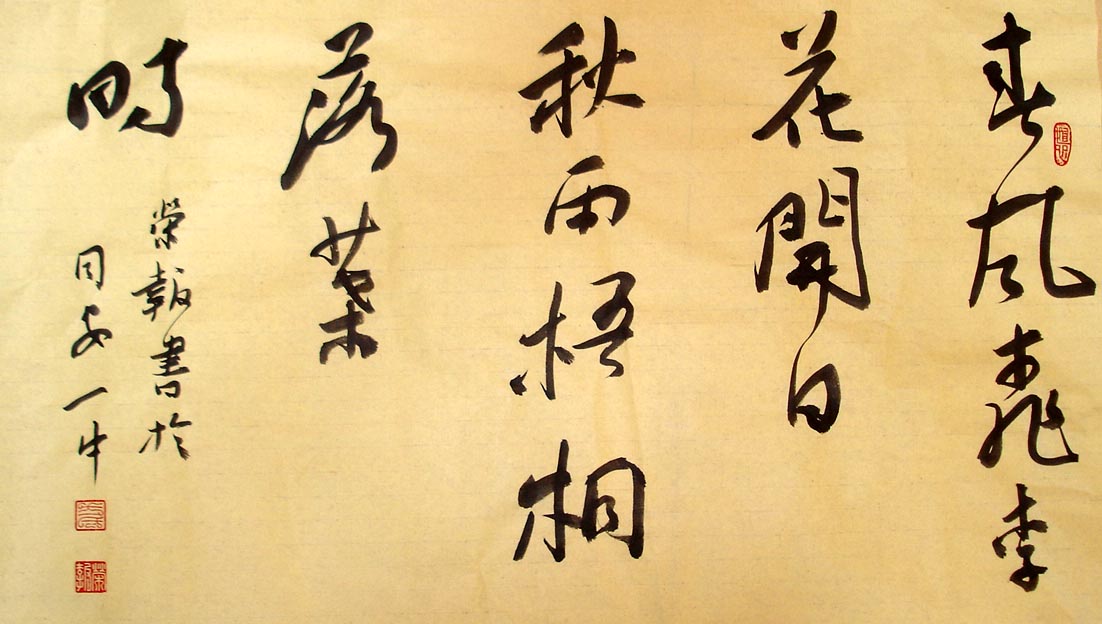 春風桃李
花開日
秋雨梧桐
落葉
時
榮報書於
同安一中